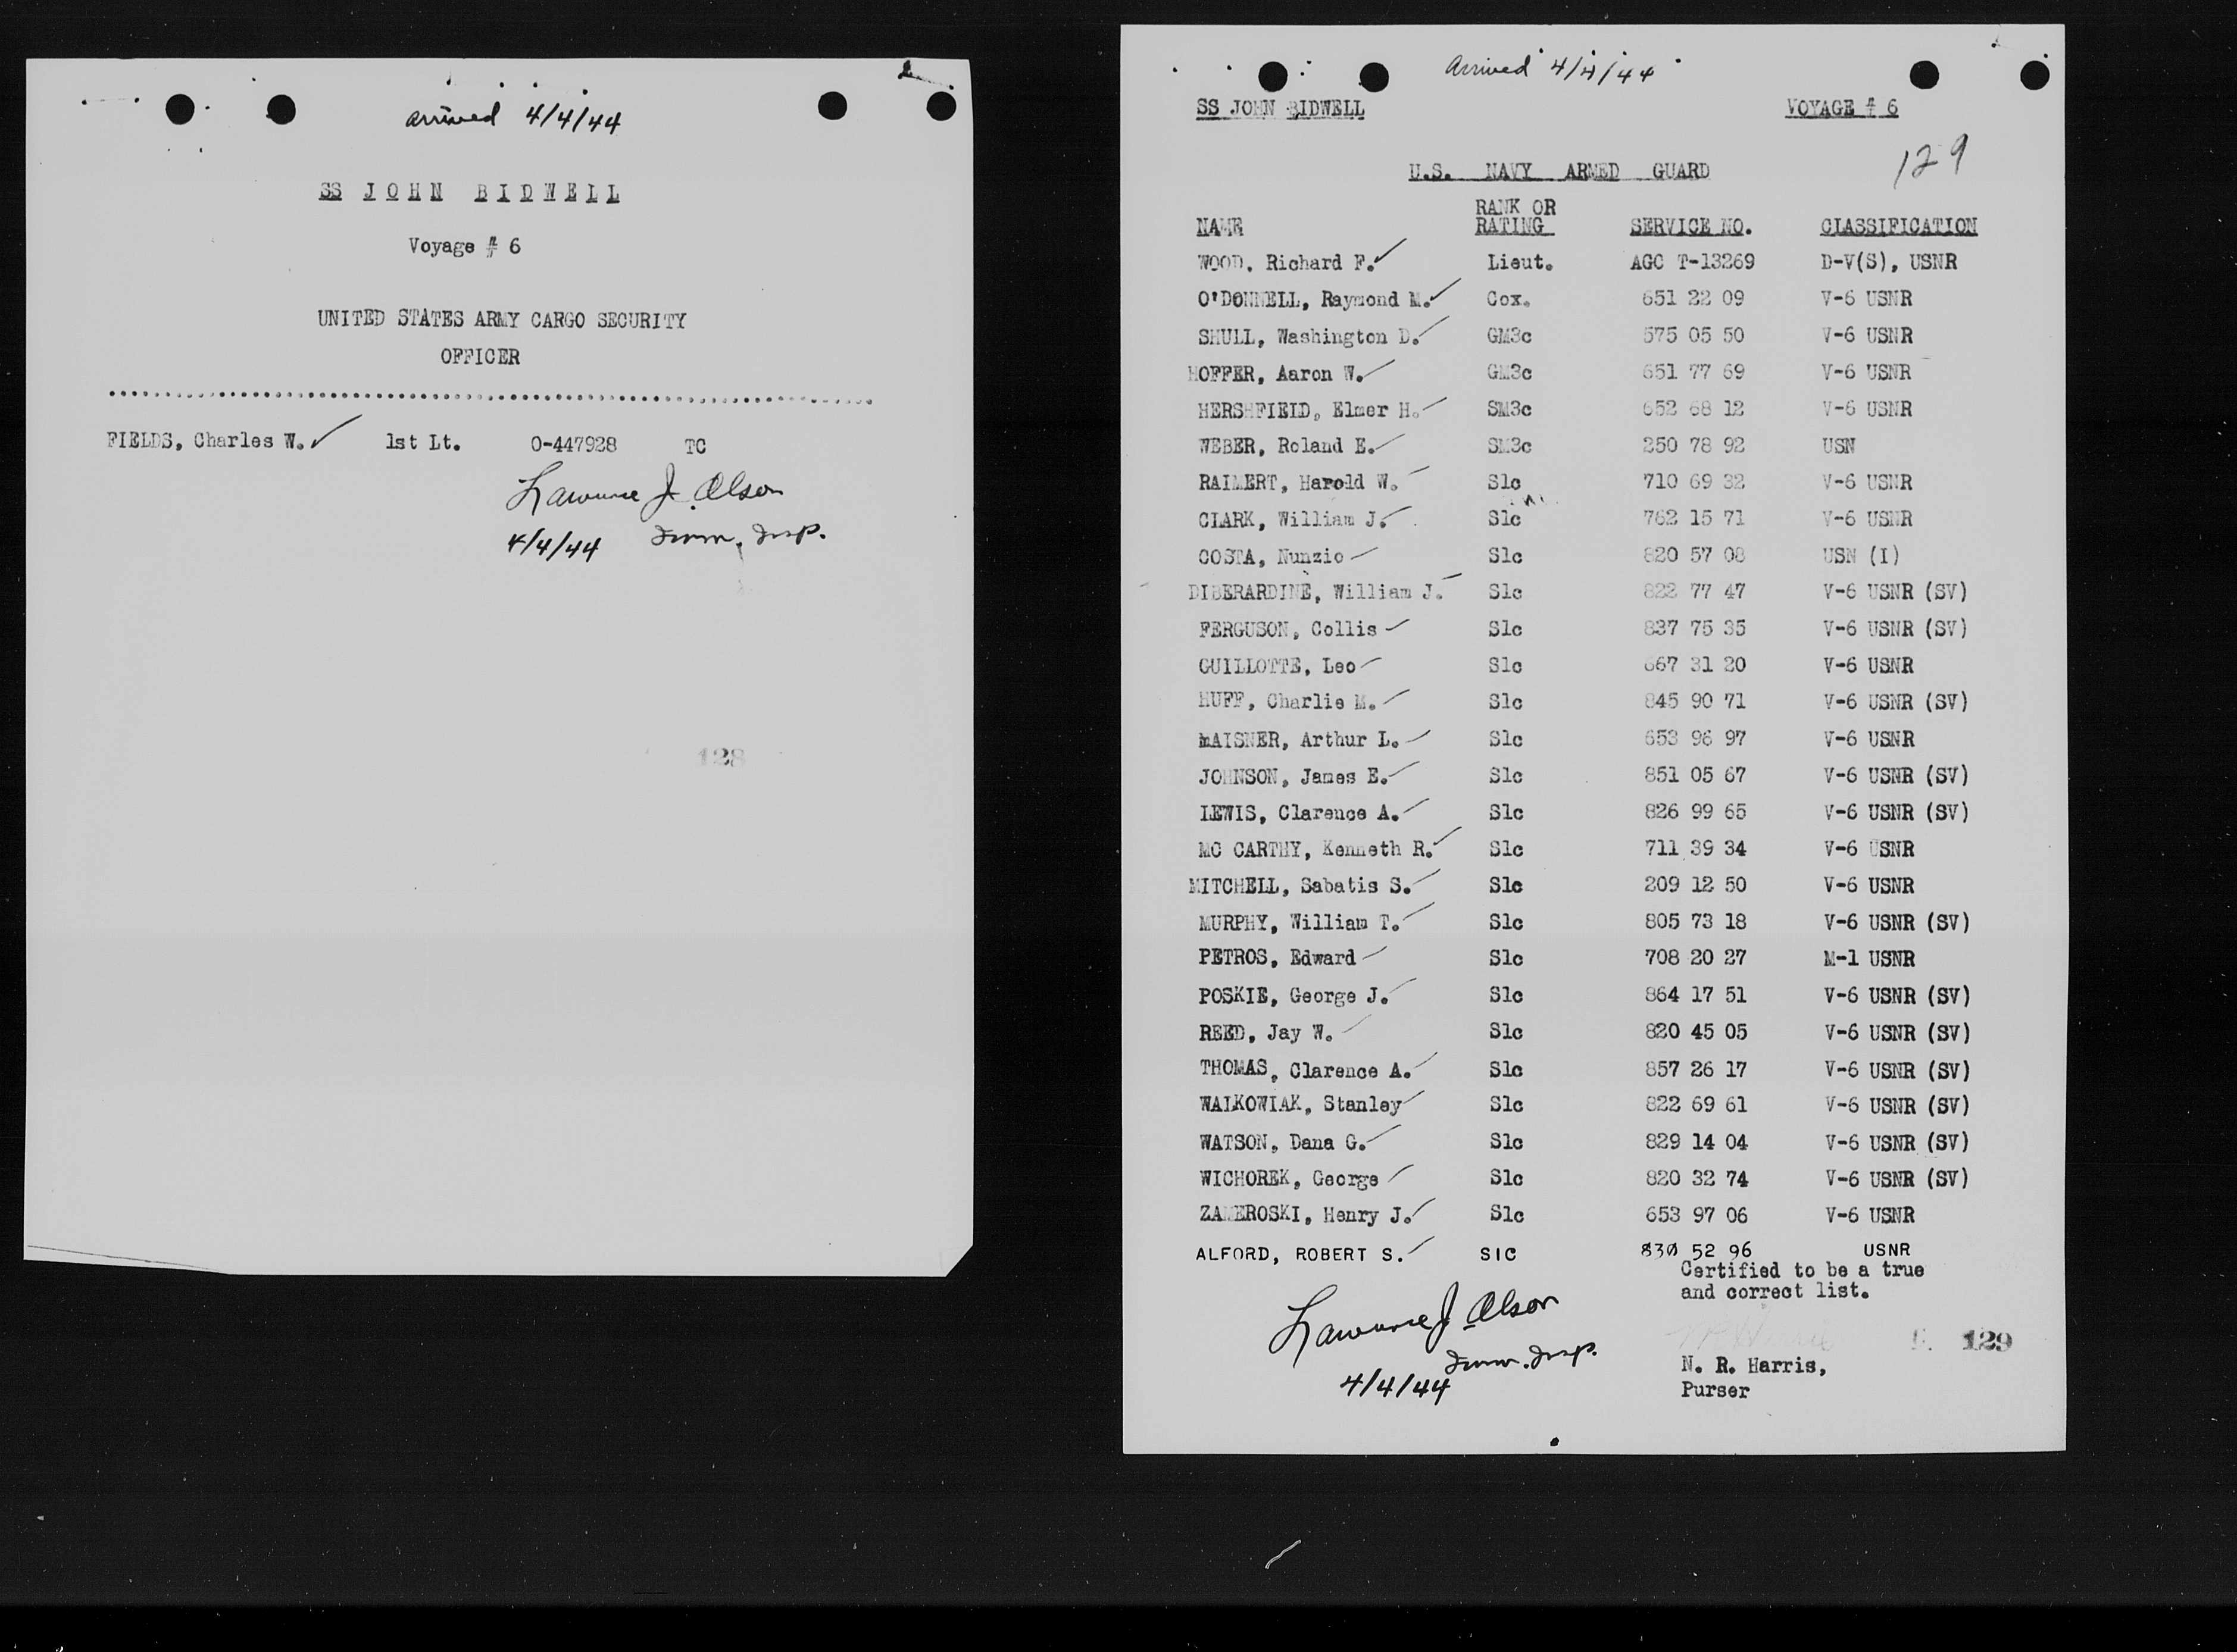 arrived 4/4/44
SS JOHN BIDWELL
Voyage # 6
UNITED STATES ARMY CARGO SECURITY
OFFICER
FIELDS, Charles W. ✓ 1st Lt. O-447928 TC
Lawrence J. Olson
4/4/44 Imm. Insp.
128
Arrived 4/4/44
SS JOHN BIDWELL VOYAGE # 6
129
U.S. NAVY ARMED GUARD
NAME RANK OR RATING SERVICE NO. CLASSIFICATION
WOOD, Richard F. ✓ Lieut. AGC T-13269 D-V(S), USNR
O'DONNELL, Raymond M. ✓ Cox. 651 22 09 V-6 USNR
SHULL, Washington D. ✓ GM3c 575 05 50 V-6 USNR
HOFFER, Aaron W. ✓ GM3c 651 77 69 V-6 USNR
HERSHFIELD, Elmer H. ✓ SM3c 652 68 12 V-6 USNR
WEBER, Roland E. ✓ SM3c 250 78 92 USN
RAIMERT, Harold W. ✓ S1c 710 69 32 V-6 USNR
CLARK, William J. ✓ S1c 762 15 71 V-6 USNR
COSTA, Nunzio ✓ S1c 820 57 08 USN (I)
DIBERARDINE, William J. ✓ S1c 822 77 47 V-6 USNR (SV)
FERGUSON, Collis ✓ S1c 837 75 35 V-6 USNR (SV)
GUILLOTTE, Leo ✓ S1c 667 31 20 V-6 USNR
HUFF, Charlie M. ✓ S1c 845 90 71 V-6 USNR (SV)
MAISNER, Arthur L. ✓ S1c 653 96 97 V-6 USNR
JOHNSON, James E. ✓ S1c 851 05 67 V-6 USNR (SV)
LEWIS, Clarence A. ✓ S1c 826 99 65 V-6 USNR (SV)
MC CARTHY, Kenneth R. ✓ S1c 711 39 34 V-6 USNR
MITCHELL, Sabatis S. ✓ S1c 209 12 50 V-6 USNR
MURPHY, William T. ✓ S1c 805 73 18 V-6 USNR (SV)
PETROS, Edward ✓ S1c 708 20 27 M-1 USNR
POSKIE, George J. ✓ S1c 864 17 51 V-6 USNR (SV)
REED, Jay W. ✓ S1c 820 45 05 V-6 USNR (SV)
THOMAS, Clarence A. ✓ S1c 857 26 17 V-6 USNR (SV)
WALKOWIAK, Stanley ✓ S1c 822 69 61 V-6 USNR (SV)
WATSON, Dana G. ✓ S1c 829 14 04 V-6 USNR (SV)
WICHOREK, George ✓ S1c 820 32 74 V-6 USNR (SV)
ZAMEROSKI, Henry J. ✓ S1c 653 97 06 V-6 USNR
ALFORD, ROBERT S. ✓ S1C 830 52 96 USNR
Certified to be a true
and correct list.
Lawrence J Olson
Imm. Insp.
4/4/44
129
N. R. Harris,
Purser